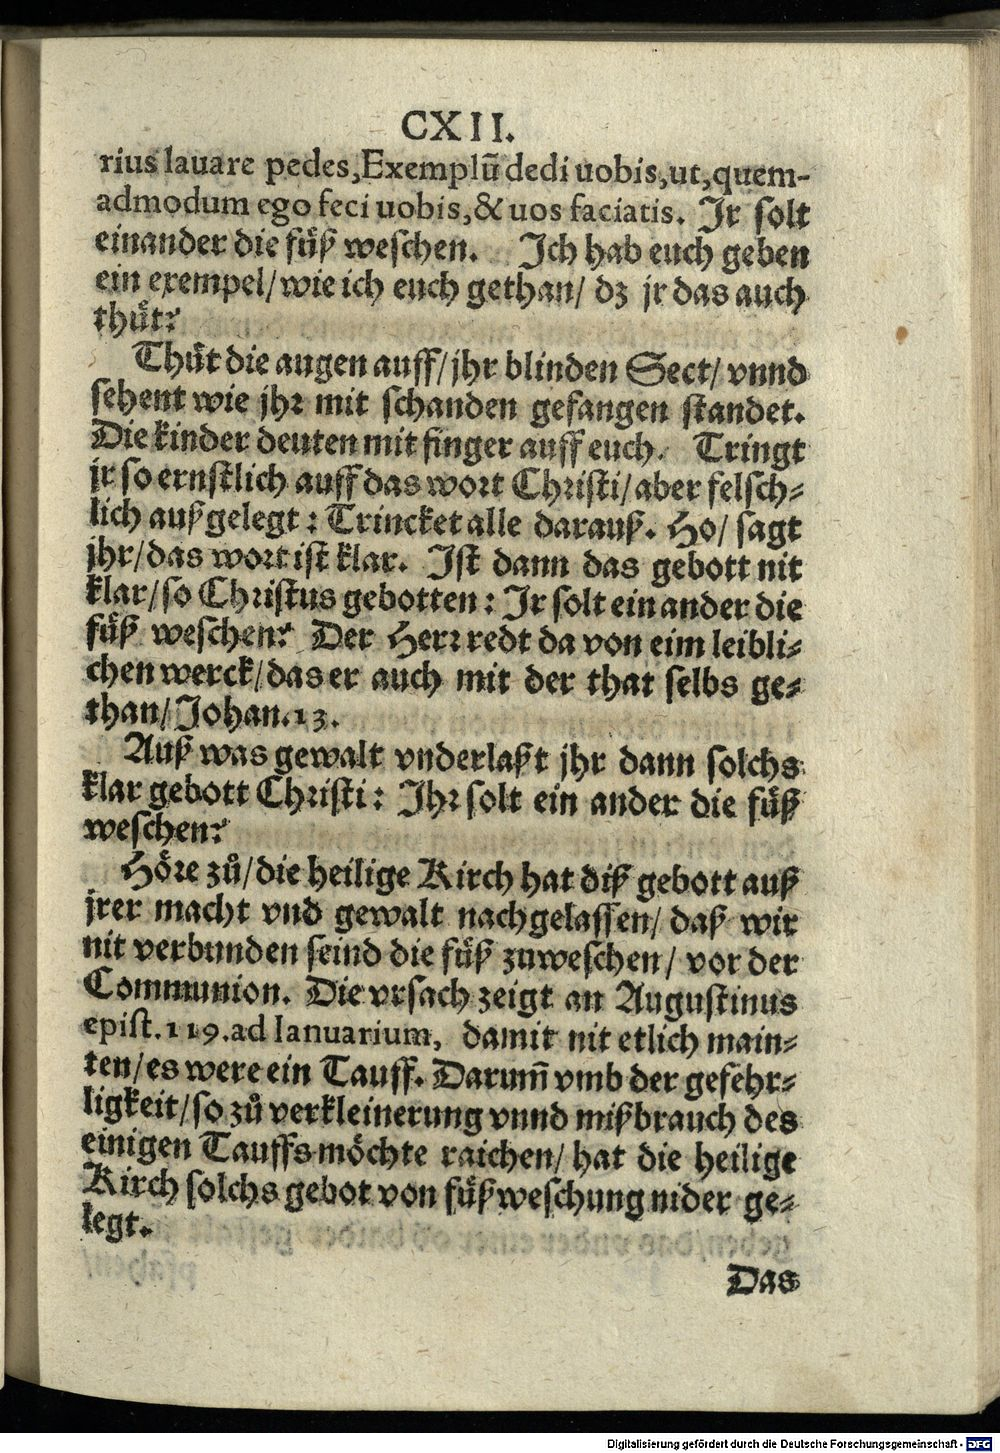 CXII.
rius lauare pedes, Exemplū dedi uobis, ut, quem-
admodum ego feci uobis, & uos faciatis. Jr solt
einander die fuͤß weschen. Jch hab euch geben
ein exempel/ wie ich euch gethan/ dz jr das auch
thuͤt?
Thuͤt die augen auff/ jhr blinden Sect/ vnnd
sehent wie jhr mit schanden gefangen standet.
Die kinder deuten mit finger auff euch. Tringt
jr so ernstlich auff das wort Christi/ aber felsch⸗
lich außgelegt: Trincket alle darauß. Ho/ sagt
jhr/ das wort ist klar. Jst dann das gebott nit
klar/ so Christus gebotten: Jr solt einander die
fuͤß weschen? Der Herr redt da von eim leibli⸗
chen werck/ das er auch mit der that selbs ge⸗
than/ Johan. 13.
Auß was gewalt vnderlaßt jhr dann solchs
klar gebott Christi: Jhr solt ein ander die fuͤß
weschen?
Hoͤre zuͦ/ die heilige Kirch hat diß gebott auß
jrer macht vnd gewalt nachgelassen/ daß wir
nit verbunden seind die fuͤß zuweschen/ vor der
Communion. Die vrsach zeigt an Augustinus
epist. 119. ad Ianuarium, damit nit etlich main⸗
ten/ es were ein Tauff. Darum̃ vmb der gefehr⸗
ligkeit/ so zuͦ verkleinerung vnnd mißbrauch des
einigen Tauffs moͤchte raichen/ hat die heilige
Kirch solchs gebot von fuͤßweschung nider ge⸗
legt.
Das
Digitalisierung gefördert durch die Deutsche Forschungsgemeinschaft - DFG